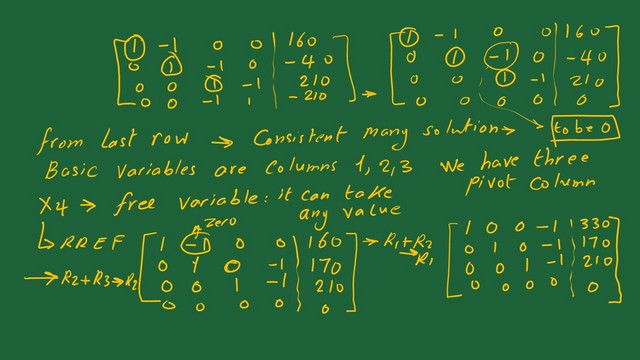 1 -1 0 0 | 160    1 -1 0 0 | 160
0 1 -1 0 | -40    0 1 -1 0 | -40
0 0 1 -1 | 210    0 0 1 -1 | 210
0 0 -1 1 | -210 →    0 0 0 0 | 0
from Last row → Consistent many solution → to be 0
Basic variables are Columns 1, 2, 3 We have three
pivot column
X4 → free variable: it can take
any value
zero
RREF
1 -1 0 0 | 160 → R1+R2    1 0 0 -1 | 330
→ R1
0 1 0 -1 | 170    0 1 0 -1 | 170
→ R2+R3→R2
0 0 1 -1 | 210    0 0 1 -1 | 210
0 0 0 0 | 0    0 0 0 0 | 0